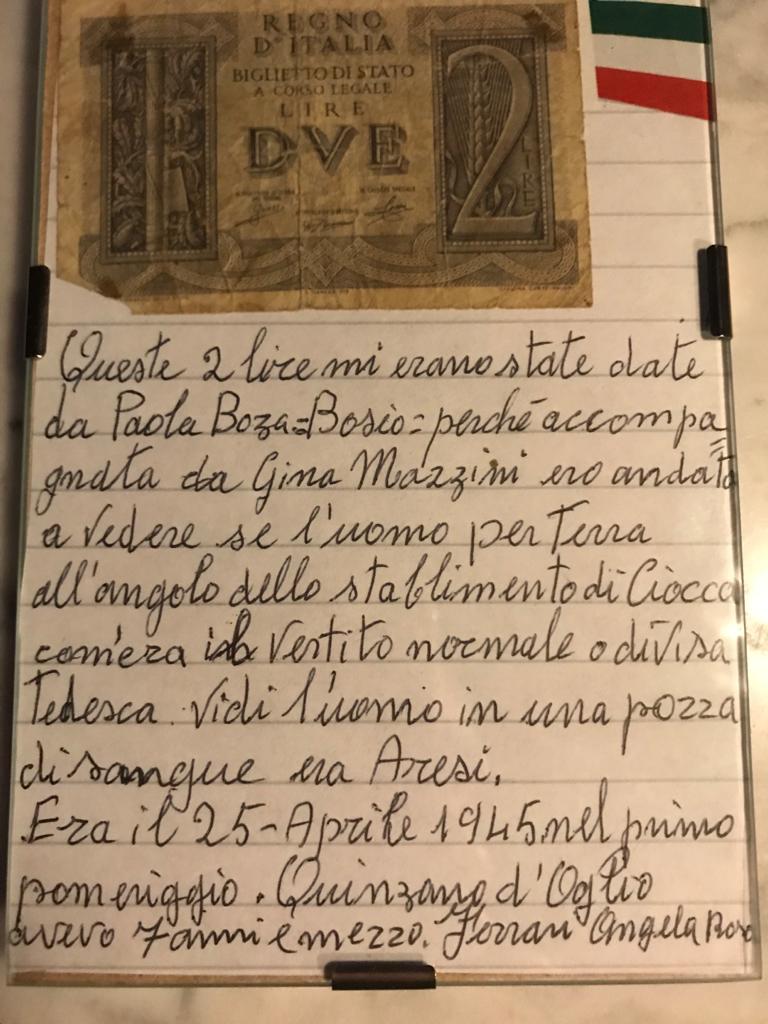 REGNO
D'ITALIA
BIGLIETTO DI STATO
A CORSO LEGALE
LIRE
DVE
2
LIRE
Queste 2 lire mi erano state date
da Paola Boza=Bosio=perché accompa=
gnata da Gina Mazzini ero andata
a vedere se l'uomo per Terra
all'angolo dello stablimento di Ciocca
com'era il vestito normale o divisa
Tedesca. Vidi l'uomo in una pozza
di sangue era Aresi.
Era il 25-Aprile 1945 nel primo
pomeriggio. Quinzano d'Oglio
avevo 7 anni e mezzo. Ferrari Angela Rosa